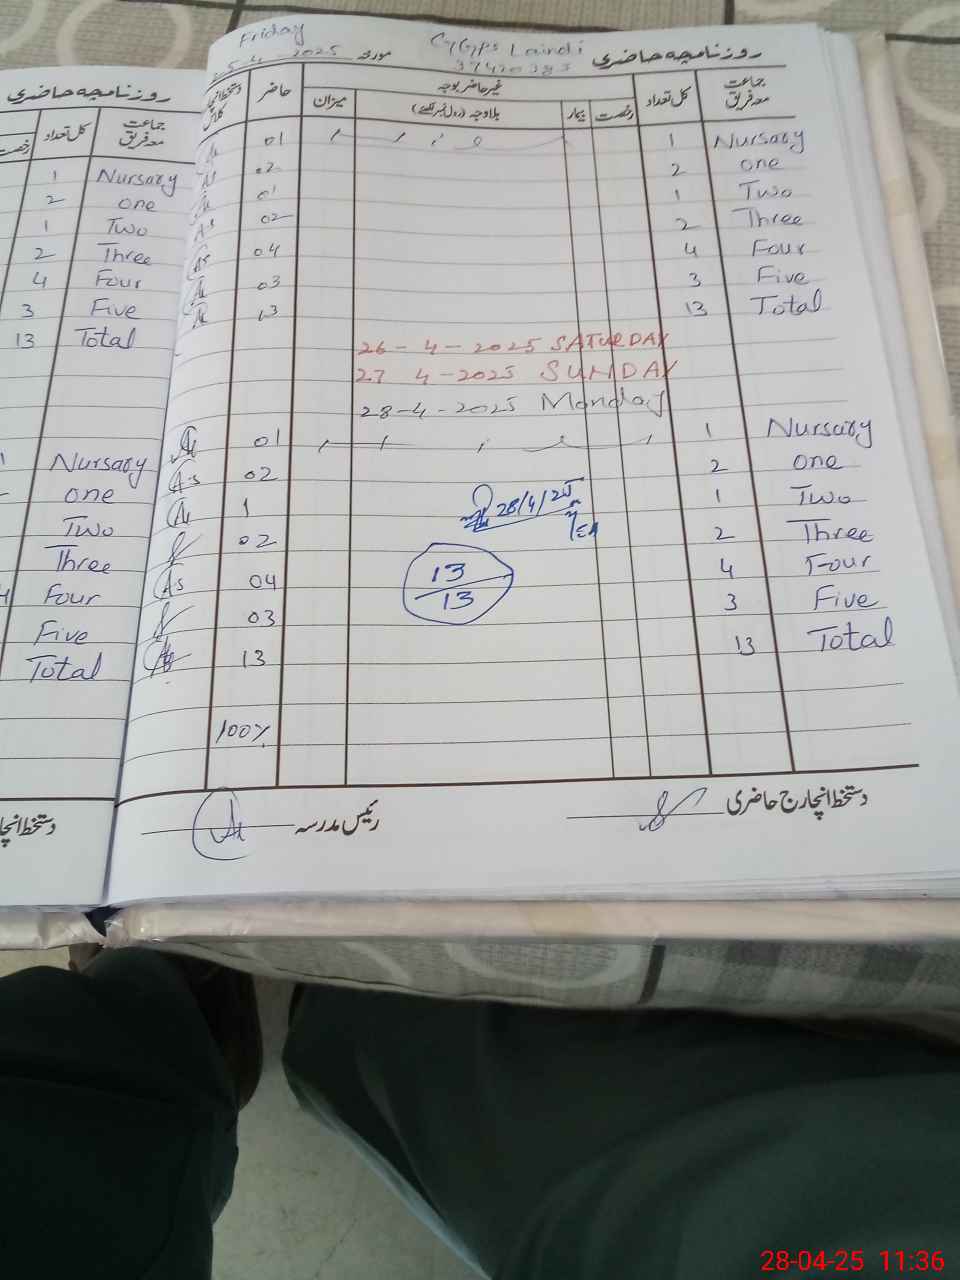 روزنامچہ حاضری
رخصت
کل تعداد
جماعت
معہ فریق
1 Nursary
2 one
1 Two
2 Three
4 Four
3 Five
13 Total
Nursary
one
Two
Three
4 Four
Five
Total
دستخط انچا
Friday
25-4-2025 مورخہ
GGPS Laindi
37420383
روزنامچہ حاضری
دستخط انچارج کلاس
حاضر
غیر حاضر بوجہ
میزان
بلاوجہ (رول نمبر لکھیے)
بیمار
رخصت
کل تعداد
جماعت
معہ فریق
01 1 Nursary
02 2 one
01 1 Two
As 02 2 Three
As 04 4 Four
03 3 Five
13 13 Total
26-4-2025 SATURDAY
27 4-2025 SUNDAY
28-4-2025 Monday
01 1 Nursary
As 02 2 one
1 1 Two
02 2 Three
As 04 4 Four
03 3 Five
13 13 Total
28/4/25
13
13
100%
رئیس مدرسہ
دستخط انچارج حاضری
28-04-25 11:36